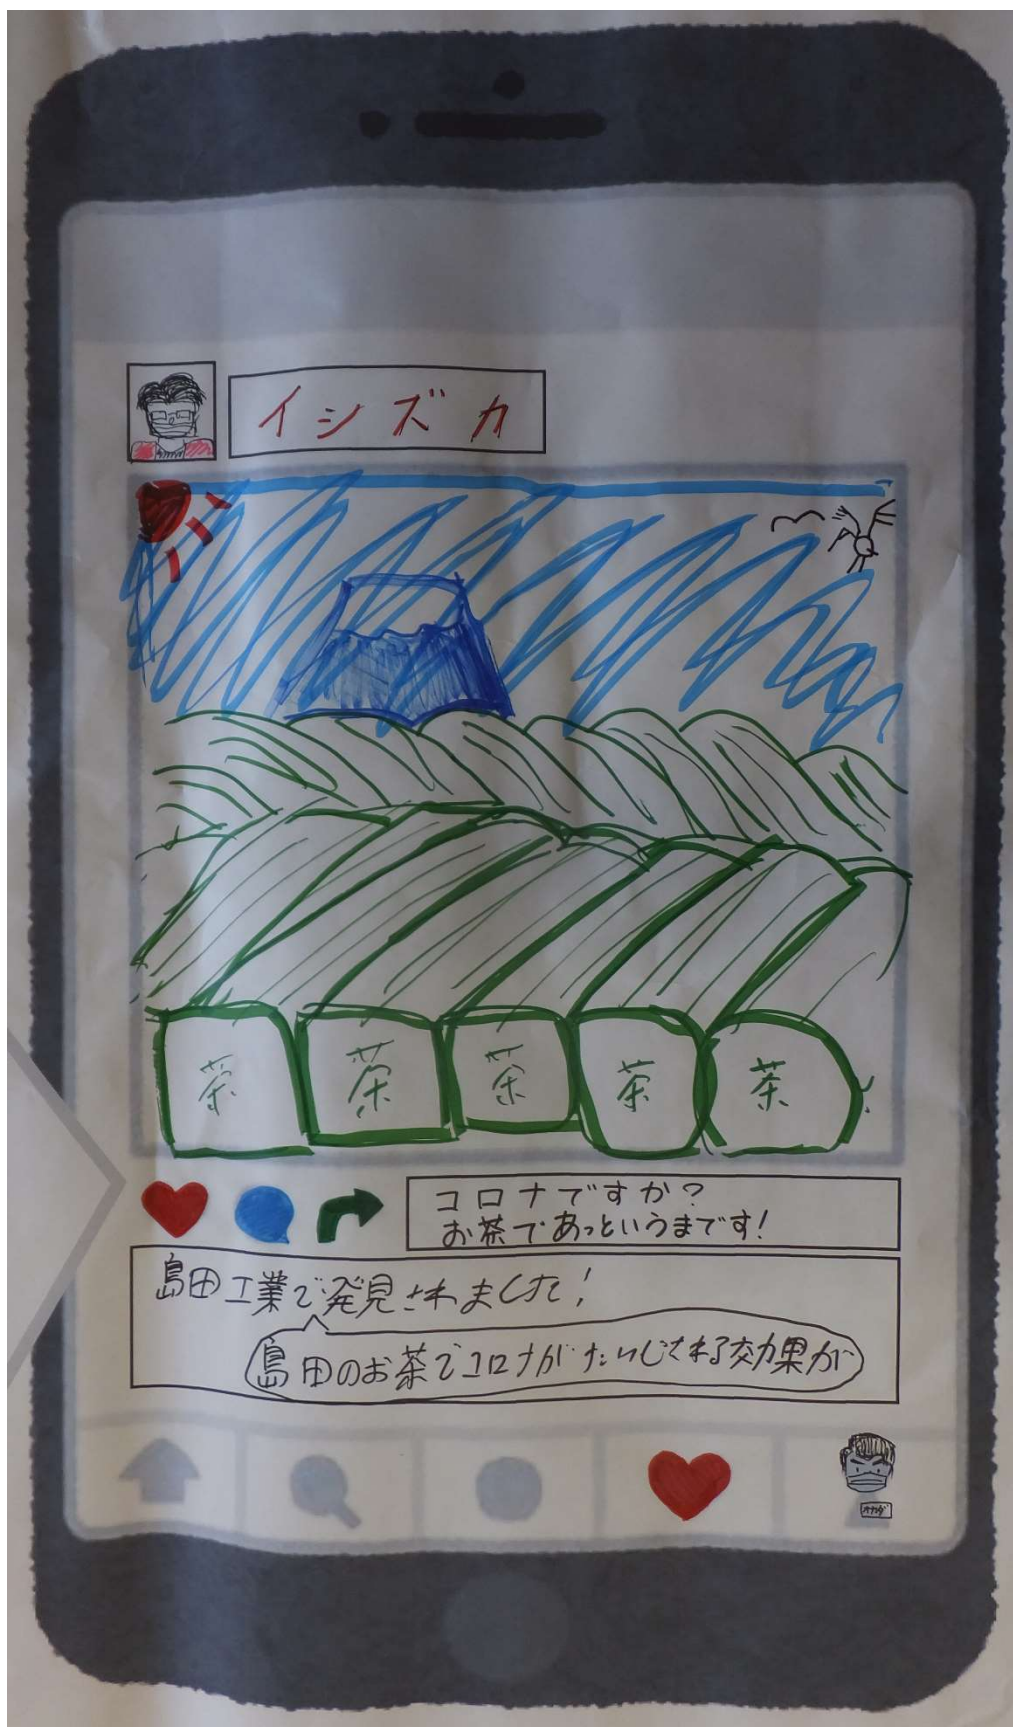 イシズカ
茶 茶 茶 茶 茶
コロナですか？
お茶であっというまです！
島田工業で発見されました！
島田のお茶でコロナがたいじされる効果が